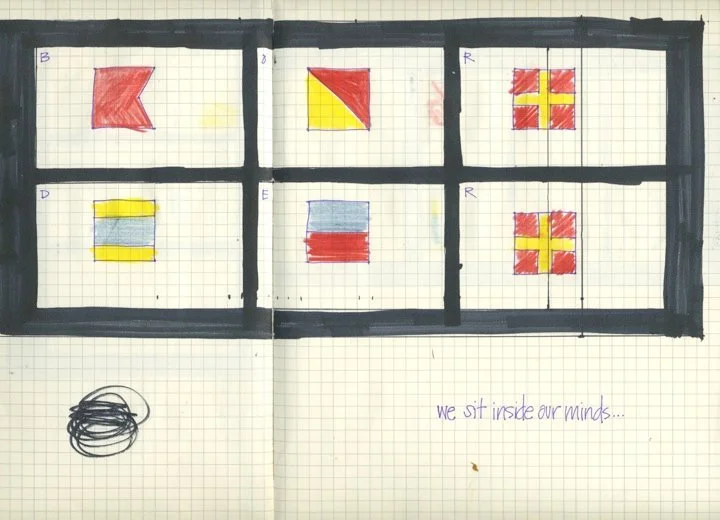 B O R
D E R
we sit inside our minds...